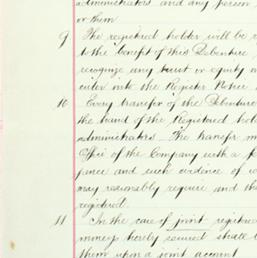 administrators and any person
or them
9 The registered holder will be r
to the benefit of this Debenture
recognize any trust or equity a
enter into the Register Notice
10 Every transfer of the Debenture
the hand of the Registered hol
administrators. The transfer m
Office of the Company with a f
pence and such evidence of
may reasonably require and th
registered.
11 In the case of joint registre
moneys hereby secured shall b
them upon a joint account